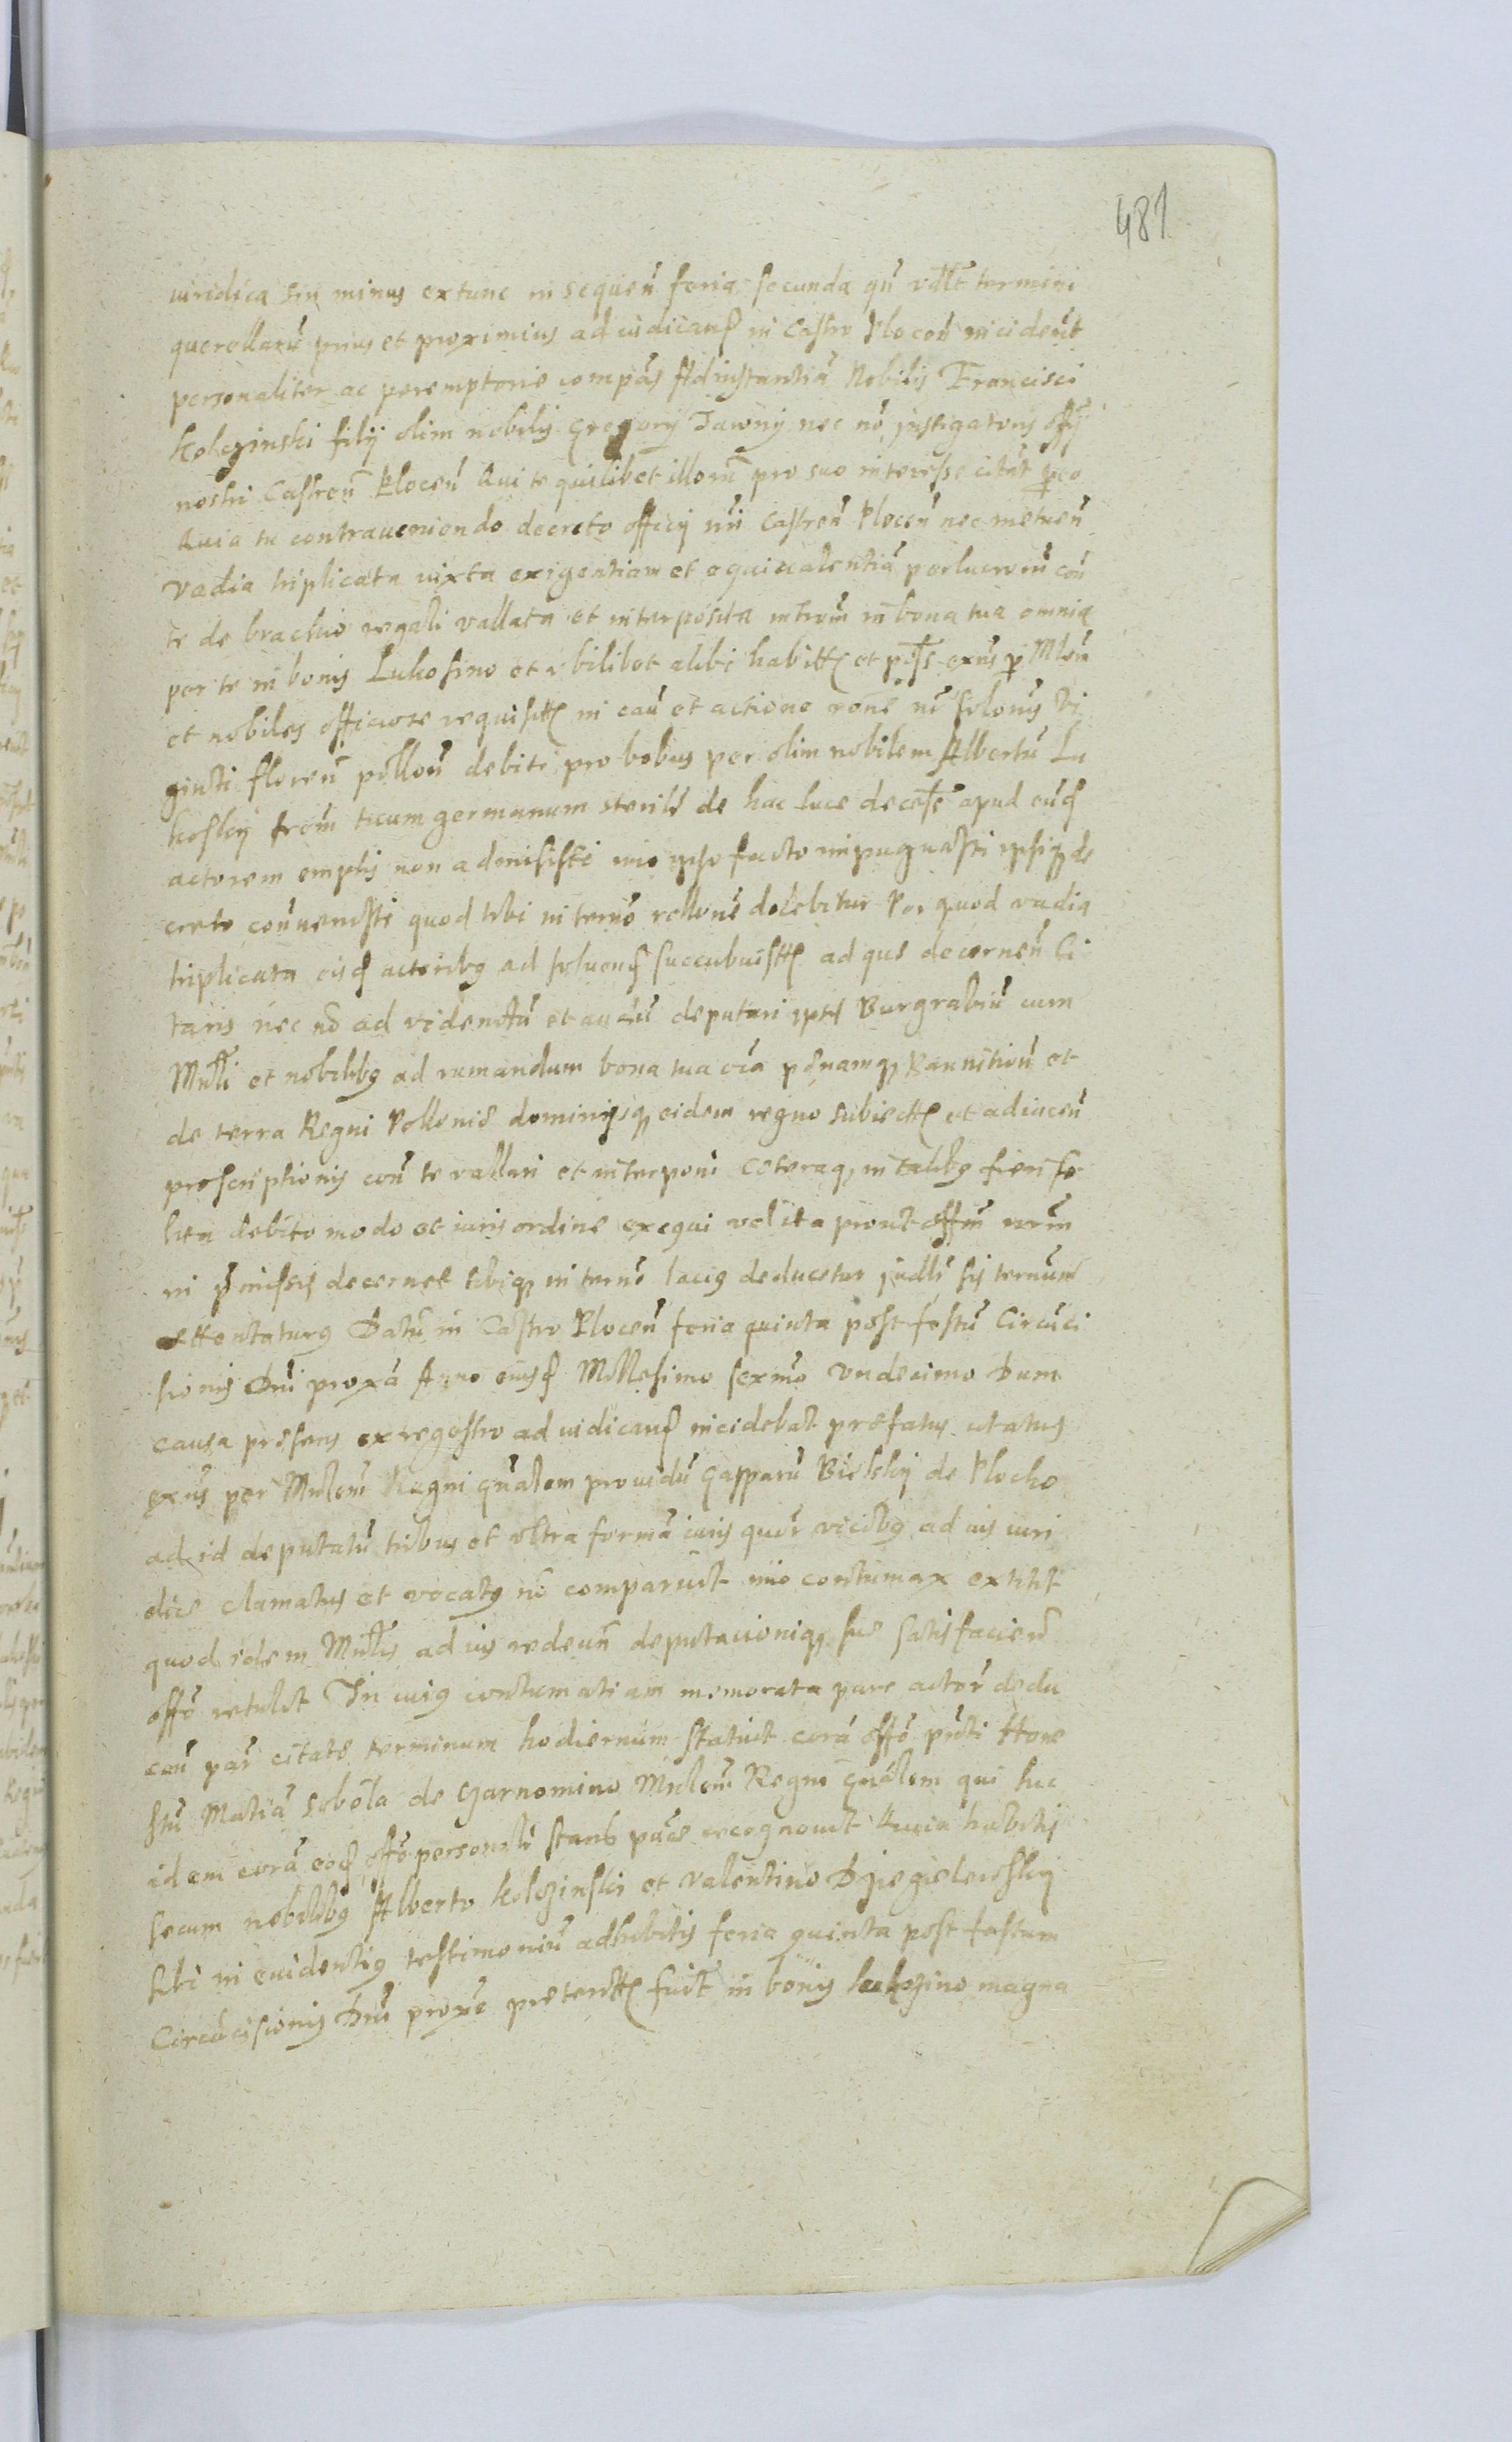 481
iuridica sin minus extunc in sequeñ feria secunda qñ vdlt termini
querellarũ prius et proximius ad iudicand in Castro Plocen̄ incident
personaliter ac peremptorie compās Ad instantiā Nobilis Francisci
Kolczinski filij olim nobilis Gregorij Jawny nec nō instigatoris offij
nostri Castren̄ Plocen̄ Qui te quilibet illorū pro suo interesse citāt pro eo
Quia tu contraueniendo decreto officij nr̄i Castren̄ Plocen̄ nec metuen̄
vadia triplicata iuxta exigentiam et equiualentiā perlucrorū con̄
te de brachio regali vallata et interposita introm̄ in bona tua omnia
per te in bonis Lukoszino et vbilibet alibi habitt et poss exn̄s p Mlem̄
et nobiles officiose requisitt in cau et actione rone nō solonis Vi
ginti floren̄ pollon̄ debiti pro bobus per olim nobilem Albertū Lu
koskij frem̄ tuum germanum sterile de hac luce decess apud eund
actorem emptis non admisisti imo ipso facto impugnasti ipsiq de
creto conuenisti quod tibi in termo rellone docebitur Per quod vadia
triplicata eisd actoribus ad soluend succubuistt ad que decernen̄ Ci
taris nec nō ad videndū et audiē deputari ipsū Burgrabiū cum
Mnlt et nobilibus ad rumandum bona tua via penamq bannition̄ et
de terra Regni Pollonie dominijsq eidem regno subiectt et adiacen̄
proscriptionis con̄ te vallari et interponi Ceteraq in talibus fieri so
lita debito modo et iuris ordine exequi vel ita prout offm̄ nrm̄
in pmissis decernet tibiq in termo lacius deducetur judlr̄ sis terminum
attentaturus Datū in Castro Plocen̄ feria quinta post festū Circūci
sionis Dn̄i proxa Anno eiusd Millesimo sexmo vndecimo Dum
causa presens ex regestro ad iudicand incidebat prefatus citatus
exn̄s per Mnlem̄ Regni gn̄alem prouidū Gasparū Bielskij de Plocko
ad id deputatū tribus et vltra formā iuris quōr vicibus ad ius iuri
dice clamatus et vocatus nō comparuit imo contumax extitit
quod idem Mnlis ad ius redeun̄ deputacioniq sue satisfacien̄
offo retulit In cuius contumatiam memorata pars actor̄ dedu
cen̄ par̄ citate terminum hodiernum statuit corā offo pn̄ti Hone
stū Matiā Sobola de Czarnomino Mnlem̄ Regni gn̄alem qui hic
idem corā eod offo personalr̄ stans pūce recognouit Quia habitis
secum nobilibus Alberto Kolczinski et Valentino Dziegielewskij
sibi in euidentius testimoniū adhibitis feria quinta post festum
Circūcisionis Dn̄i proxe preteritt fuit in bonis Lukoszino magna